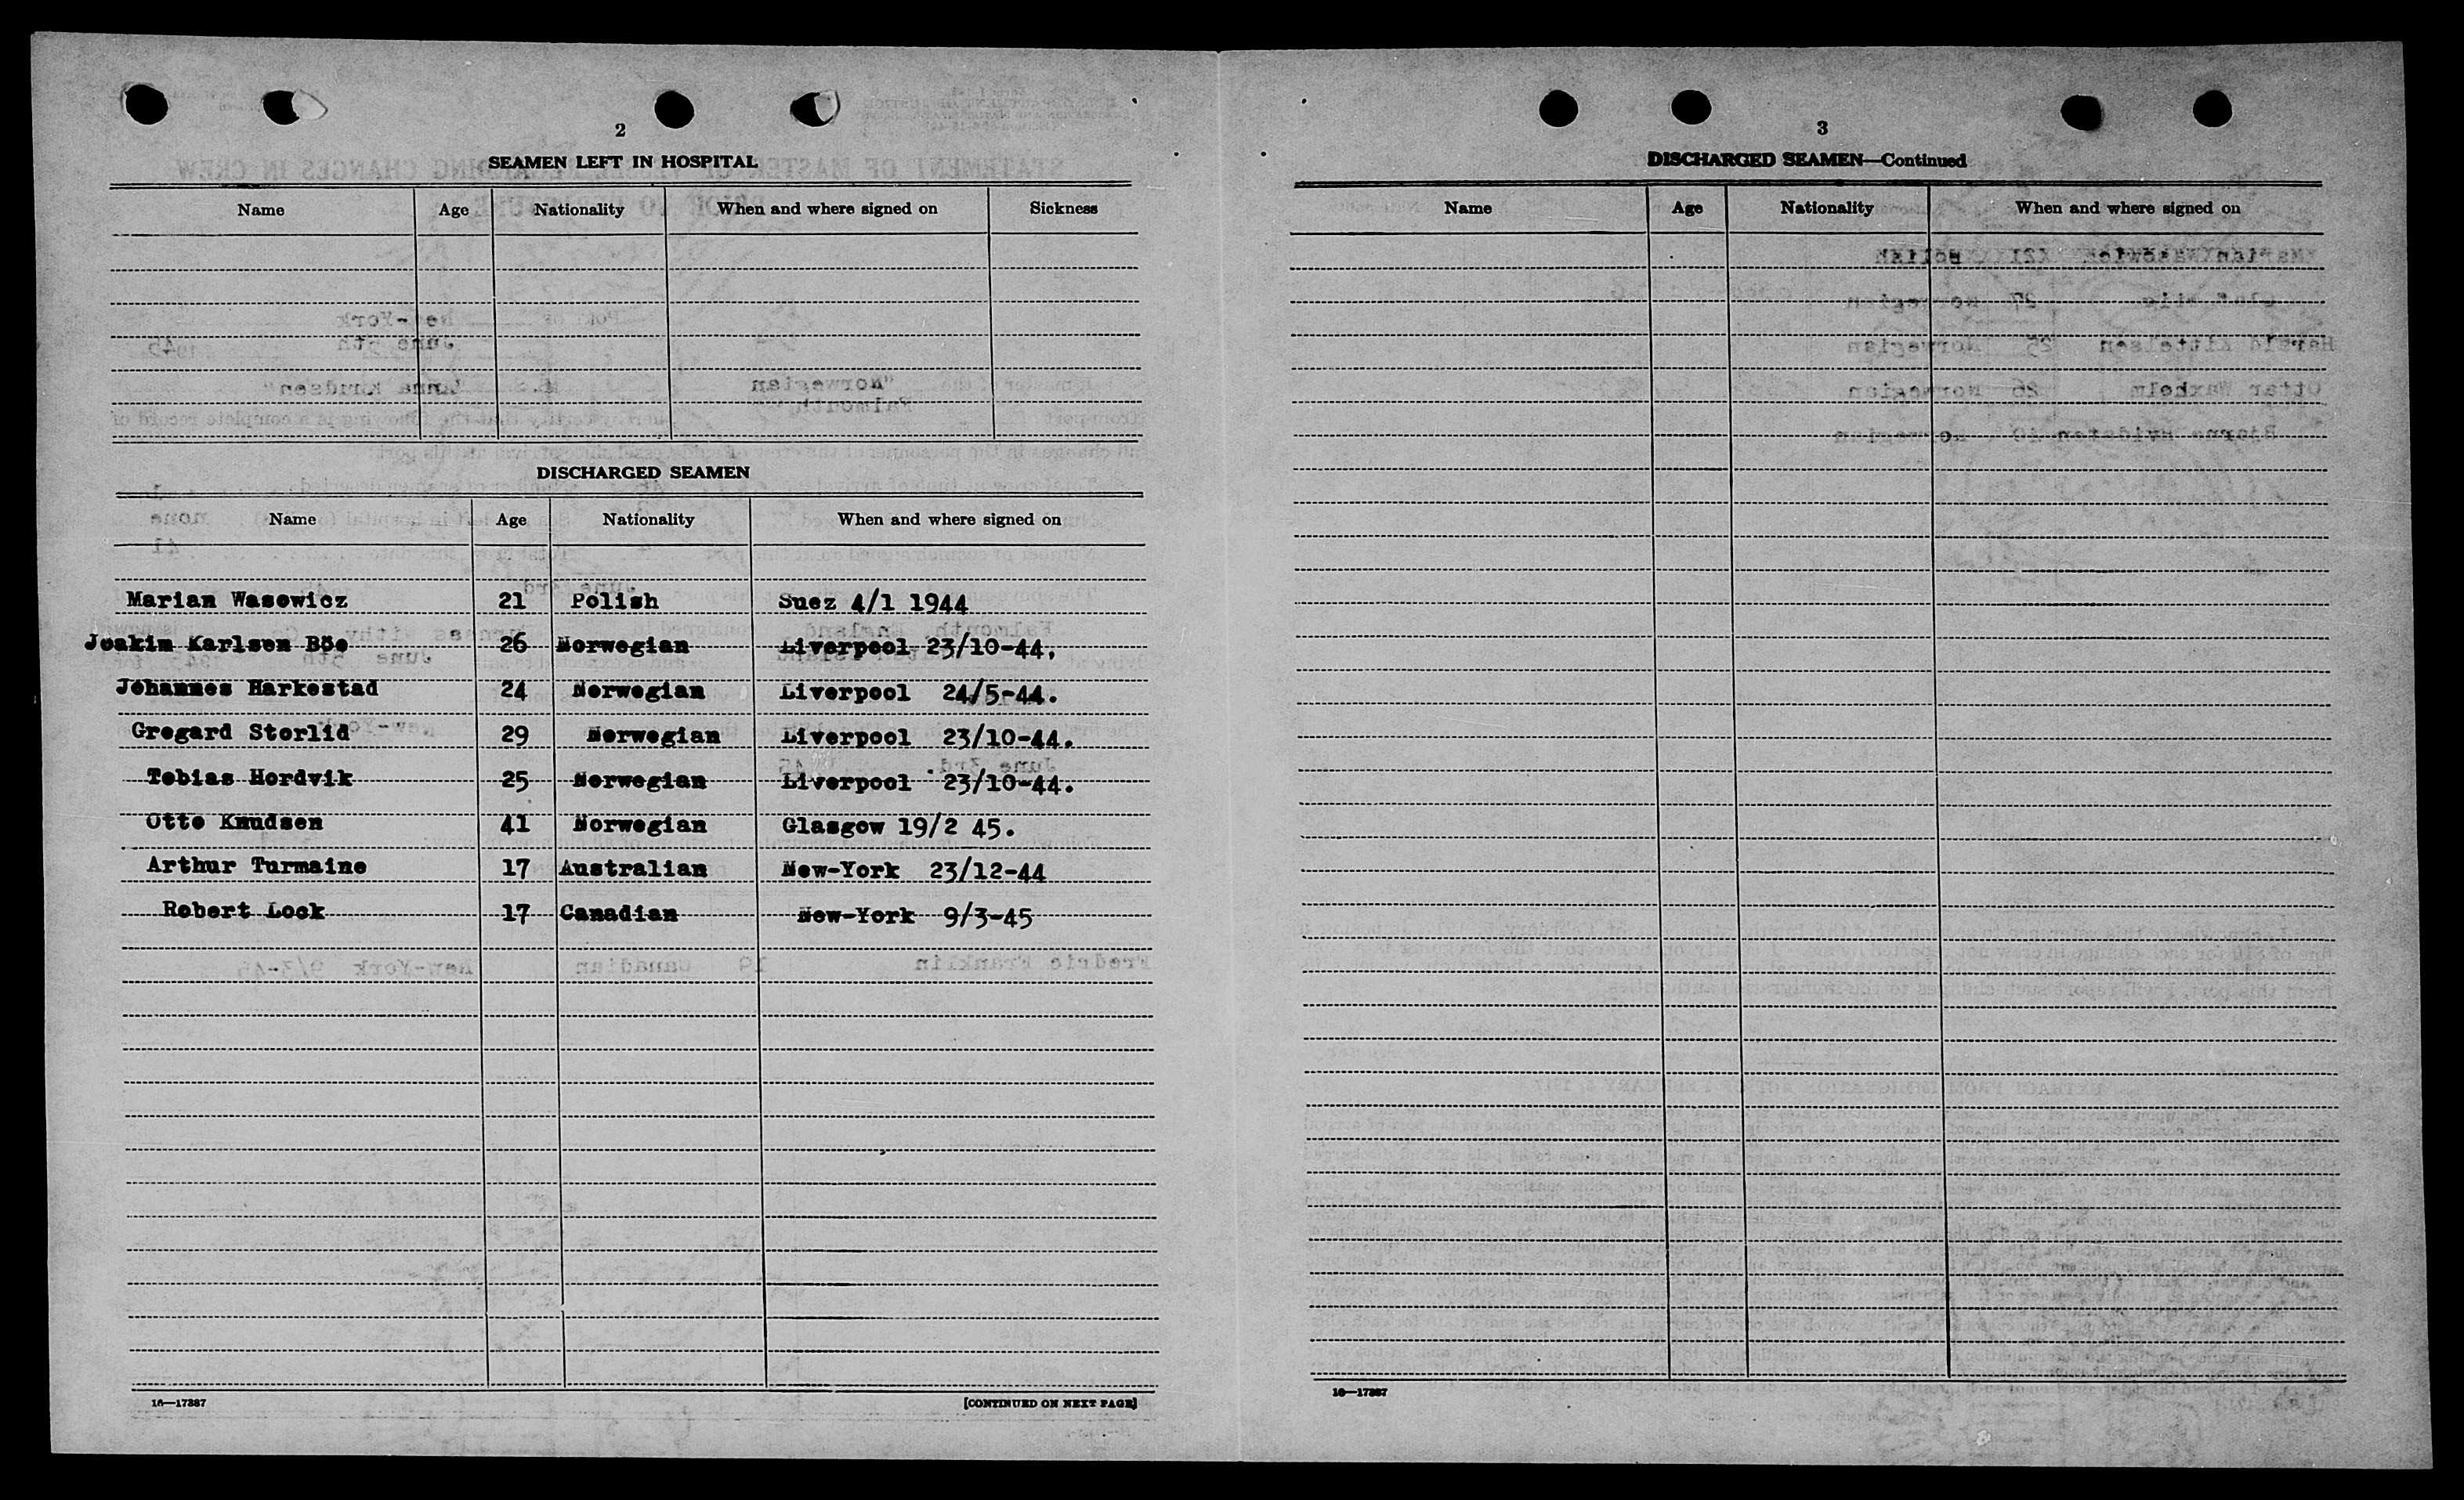 2
SEAMEN LEFT IN HOSPITAL
Name Age Nationality When and where signed on Sickness
DISCHARGED SEAMEN
Name Age Nationality When and where signed on
Marian Wasowicz 21 Polish Suez 4/1 1944
Joakim Karlsen Böe 26 Norwegian Liverpool 23/10-44.
Johannes Harkestad 24 Norwegian Liverpool 24/5-44.
Gregard Storlid 29 Norwegian Liverpool 23/10-44.
Tobias Hordvik 25 Norwegian Liverpool 23/10-44.
Otto Knudsen 41 Norwegian Glasgow 19/2 45.
Arthur Turmaine 17 Australian New-York 23/12-44
Robert Lock 17 Canadian New-York 9/3-45
16—17387
[CONTINUED ON NEXT PAGE]
3
DISCHARGED SEAMEN—Continued
Name Age Nationality When and where signed on
16—17387